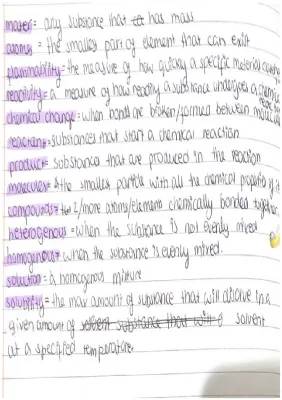 mater= any substance that has mass
atoms = the smallest part of element that can exist
flammability= the measure of how quickly a specific material
reactivity= a measure of how readily a substance undergoes a chemical
chemical change= when bonds are broken/formed between molecules
reactant= substances that start a chemical reaction
product= substances that are produced in the reaction
molecules= the smallest particle with all the chemical properties of
compounds= 2/more atoms/element chemically bonded together
heterogenous= when the substance is not evenly mixed
homogenous= when the substance is evenly mixed.
solution= a homogenous mixture
solubility= the max amount of substance that will disolve in a
given amount of solvent substance that will solvent
at a specified temperature